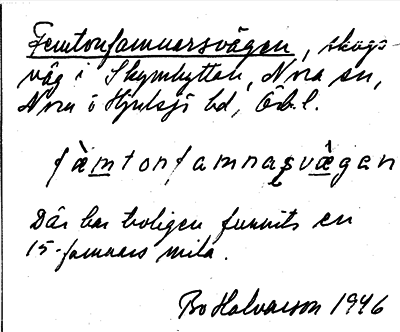 Femtonfamnarsvägen, skogs-
väg i Skymhyttan, Nora sn,
Nora o Hjulsjö bd, Öb.l.
fàmtonfamnaşvä̂gan
Där har troligen funnits en
15-famnars mila.
Bo Halvarson 1946